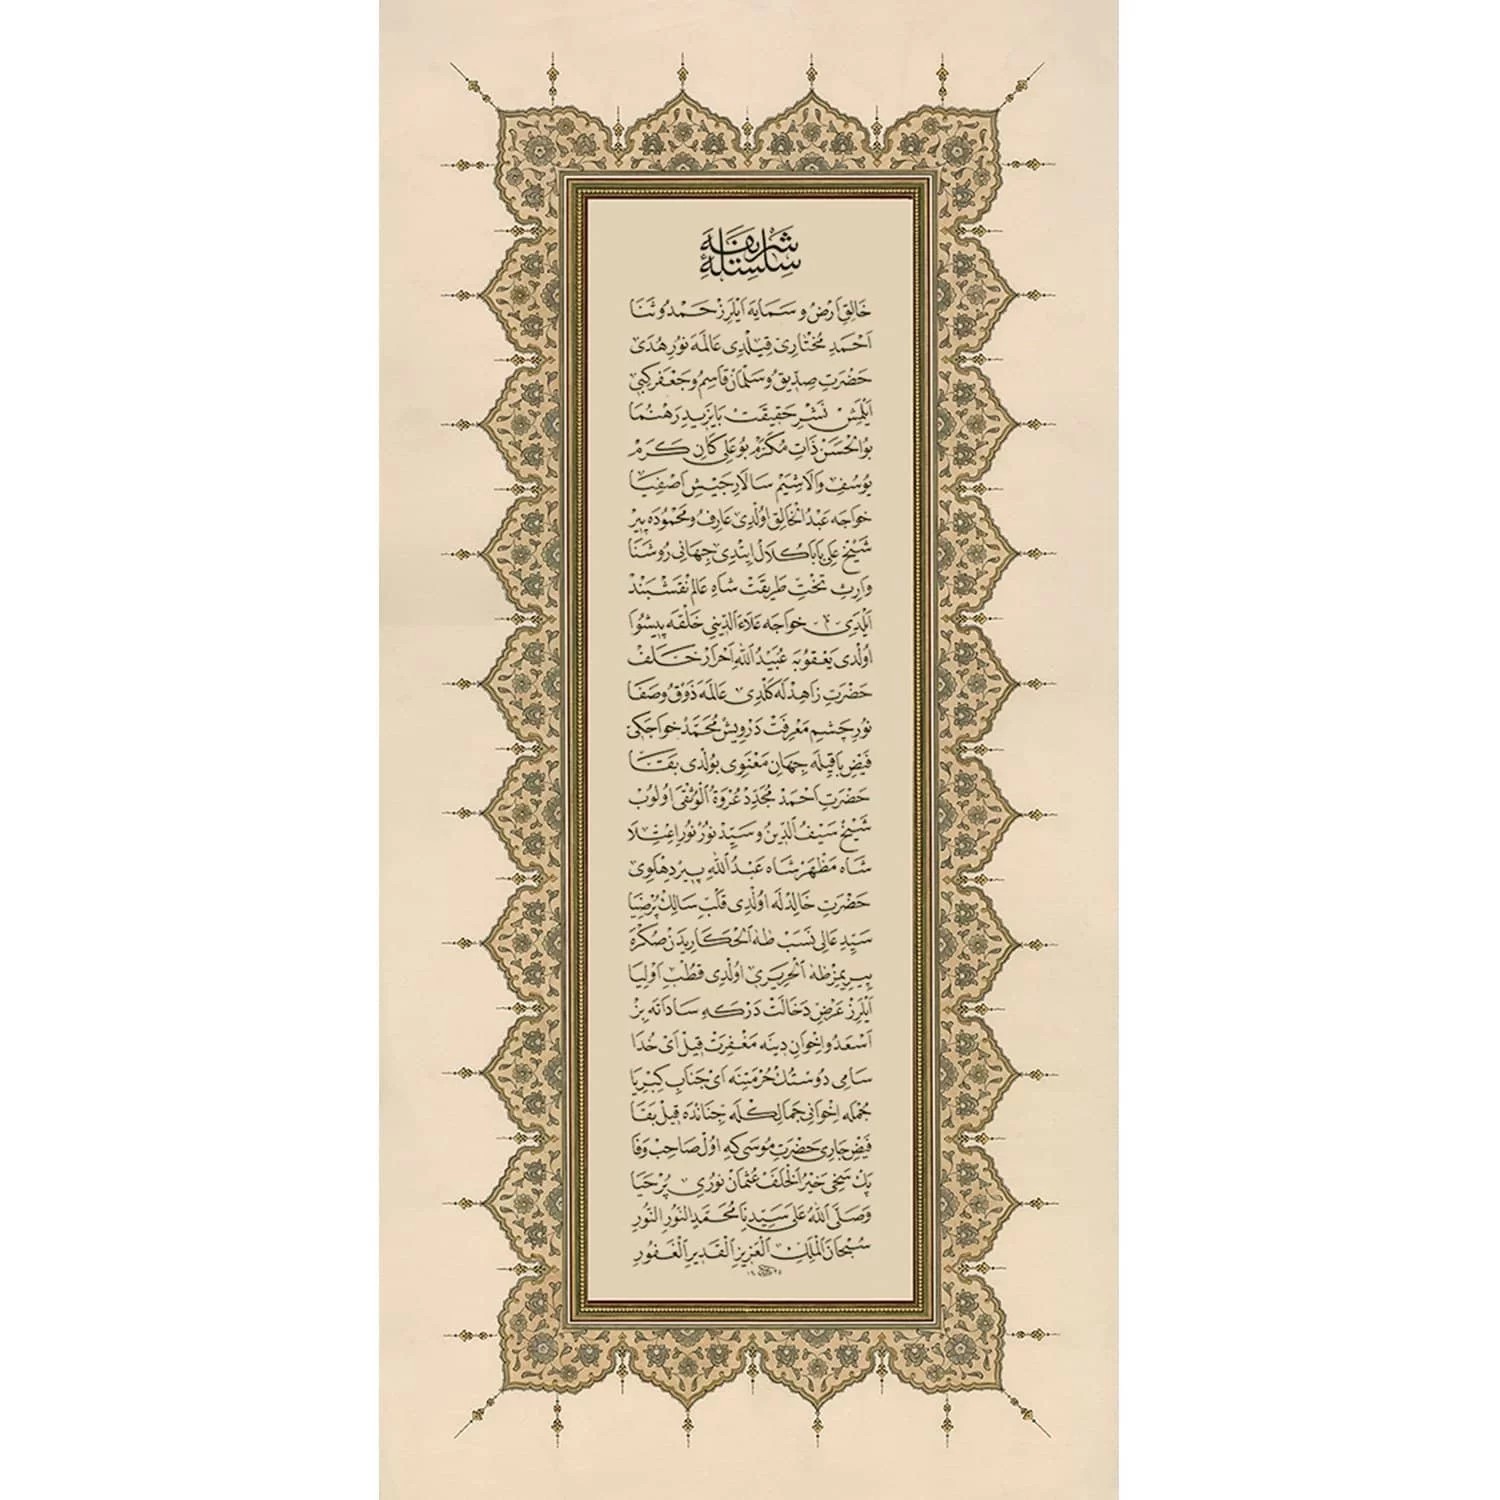 سلسلهٔ شريفه
خَالِقِ ارْضُ و سَمَايَه ايْلَرِزْ حَمْدُ و ثَنَا
اَحْمَدِ مُخْتَارِى قِيلْدِى عَالَمَه نُورِ هُدَى
حَضْرَتِ صِدِّيقُ و سَلْمَانْ قَاسِمُ و جَعْفَر كِبِى
اَيْلَمِشْ نَشْرِ حَقِيقَتْ بَايَزِيدِ رَهْنُمَا
بُو الْحَسَنْ ذَاتِ مُكَرَّمْ بُو عَلِى كَانِ كَرَمْ
يُوسُفِ وَالَا شِيَمْ سَالَارِ جَيْشِ اَصْفِيَا
خواجَه عَبْدُ الْخَالِقْ اوُلْدِى عَارِفُ و مَحْمُودَه پِيْر
شَيْخْ عَلِى بَابَا كُلَالْ ايتْدِى جِهَانِى رُوشَنَا
وَارِثِ تَخْتِ طَرِيقَتْ شَاهِ عَالَمْ نَقْشْبَنْد
اَيْلَدِى خواجَه عَلَاءَ الدِّينِى خَلْقَه پِيشْوَا
اوُلْدِى يَعْقُوبَه عُبَيْدُ اللّٰهِ اَحْرَارْ خَلَفْ
حَضْرَتِ زَاهِدْ لَه كَلْدِى عَالَمَه ذَوْقُ و صَفَا
نُورِ چَشْمِ مَعْرِفَتْ دَرْوِيشْ مُحَمَّدْ خواجَكِى
فَيْضِ بَاقِيلَه جِهَانِ مَعْنَوِى بُولْدِى بَقَا
حَضْرَتِ اَحْمَدْ مُجَدِّدْ عُرْوَةُ الْوُثْقَى اوُلُوبْ
شَيْخْ سَيْفُ الدِّينُ و سَيِّدْ نُورْ نُورِ اعْتِلَا
شَاه مَظْهَرْ شَاه عَبْدُ اللّٰهِ پِيرِ دِهْلَوِى
حَضْرَتِ خَالِدْ لَه اوُلْدِى قَلْبِ سَالِكْ پُرْ ضِيَا
سَيِّدِ عَالِى نَسَبْ طٰهٰ الْحَكَارِيدَنْ صُكْرَه
پِيرِيمِزْ طٰهٰ الْحَرِيرِى اوُلْدِى قُطْبِ اَوْلِيَا
اَيْلَرِزْ عَرْضِ دَخَالَتْ دَرْكَهِ سَادَاتَه بِزْ
اَسْعَدُ و اِخْوَانِ دِينَه مَغْفِرَتْ قِيلْ اَىْ خُدَا
سَامِى دُوسْتُكْ حُرْمَتِنَه اَىْ جَنَابِ كِبْرِيَا
جُمْلَه اِخْوَانِى جَمَالِكْلَه جِنَانْدَه قِيلْ بَقَا
فَيْضِ جَارِى حَضْرَتِ مُوسَى كِه اوُلْ صَاحِبْ وَفَا
پَكْ سَخِى خَيْرُ الْخَلَفْ عُثْمَانْ نُورِى پُرْ حَيَا
وَصَلَّى اللّٰهُ عَلَى سَيِّدِنَا مُحَمَّدٍ النُّورِ النُّورِ
سُبْحَانَ الْمَلِكِ الْعَزِيزِ الْقَدِيرِ الْغَفُورِ